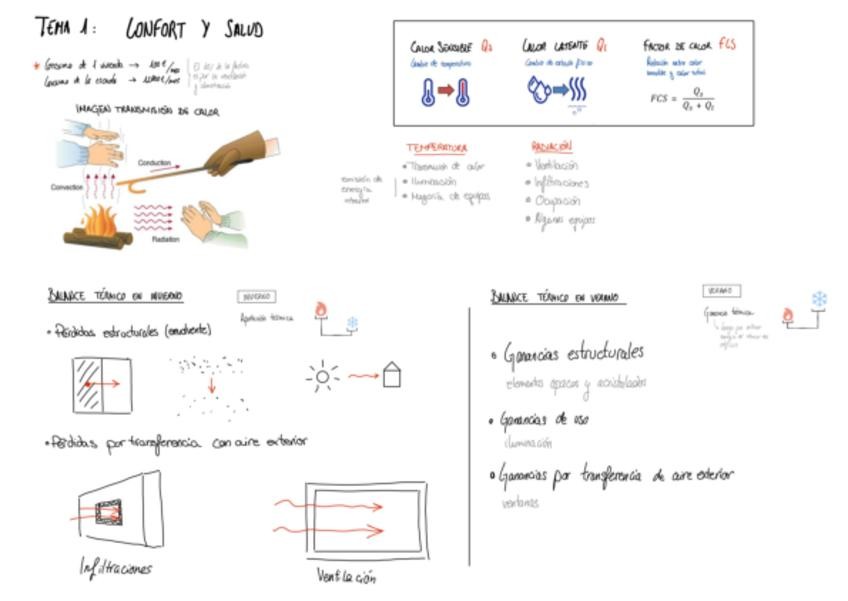 TEMA 1: CONFORT Y SALUD
* Consumo de 1 vivienda → 100€/mes
Consumo de la escuela →
IMAGEN TRANSMISIÓN DE CALOR
Conduction
Convection
Radiation
CALOR SENSIBLE Qs
Cambio de temperatura
CALOR LATENTE QL
Cambio de estado físico
FACTOR DE CALOR FCS
Relación entre calor
sensible y calor total
FCS = Qs / (Qs + QL)
TEMPERATURA
• Transmisión de calor
• Iluminación
• Mayoría de equipos
emisión de
energía
interior
RADIACIÓN
• Ventilación
• Infiltraciones
• Ocupación
• Algunos equipos
BALANCE TÉRMICO EN INVIERNO
INVIERNO
Aportación térmica
• Pérdidas estructurales (envolvente)
• Pérdidas por transferencia con aire exterior
Infiltraciones
Ventilación
BALANCE TÉRMICO EN VERANO
VERANO
Ganancia térmica
• Ganancias estructurales
elementos opacos y acristalados
• Ganancias de uso
iluminación
• Ganancias por transferencia de aire exterior
ventanas